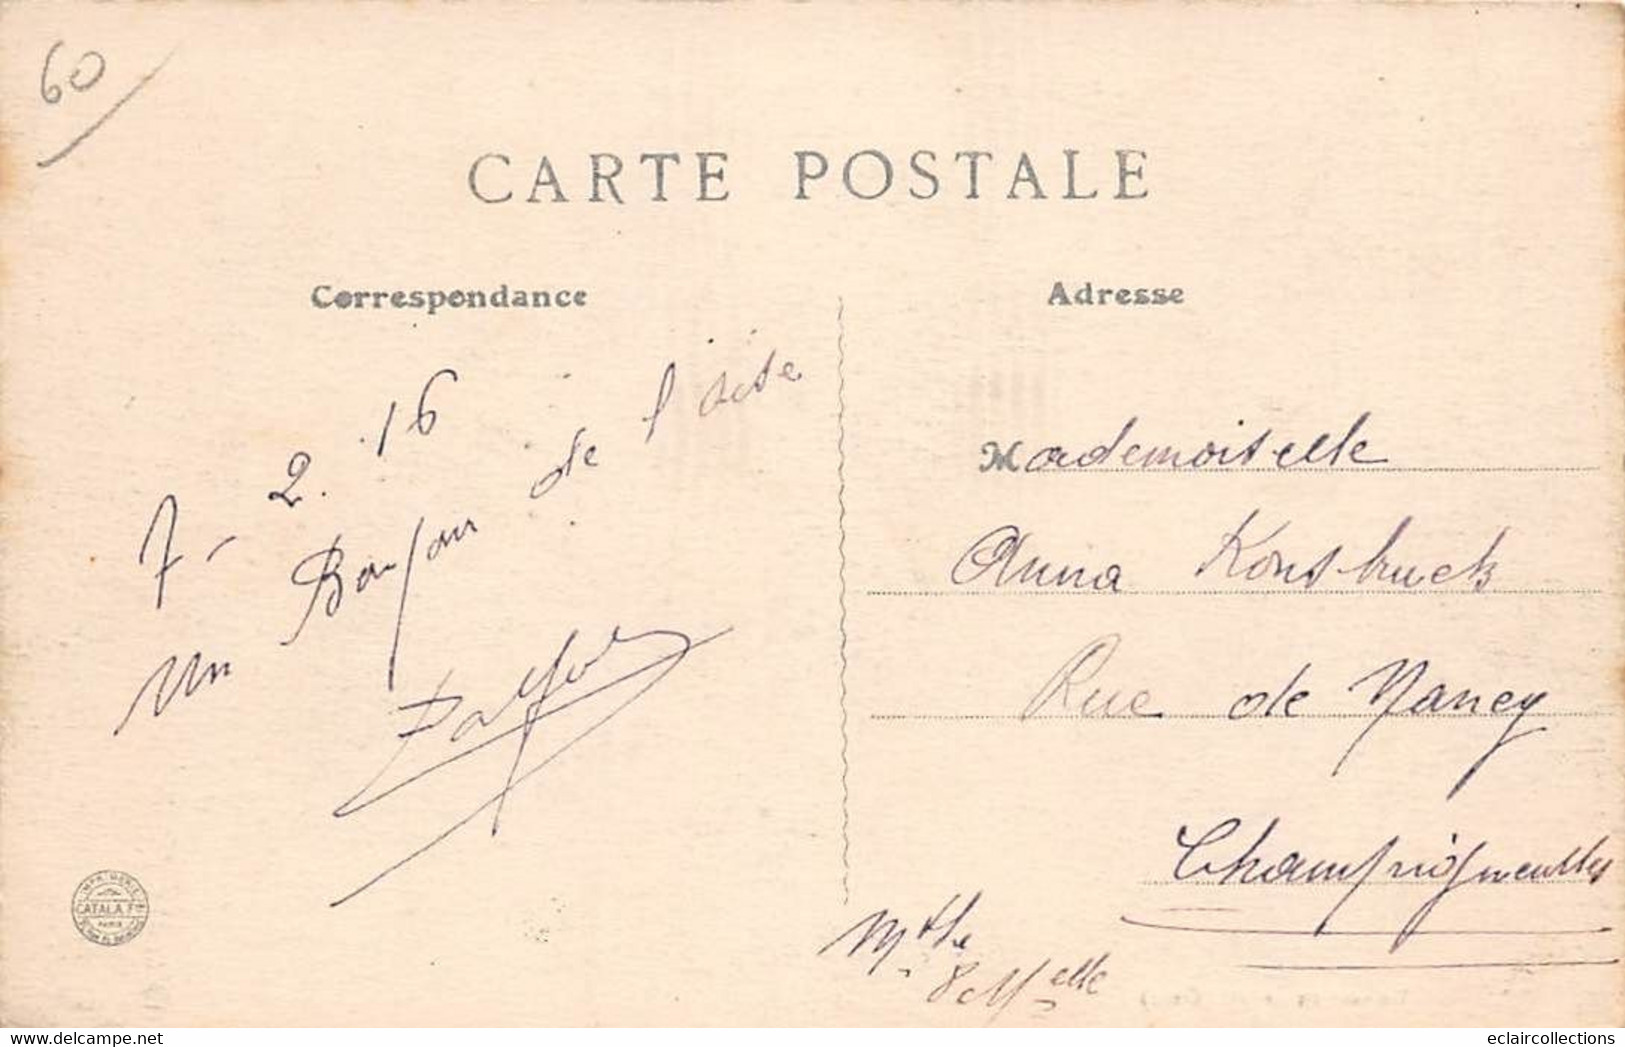 60
CARTE POSTALE
Correspondance
Adresse
7 - 2. 16
un Bonjour de l'oise
Mademoiselle
Anna Konsbruck
Rue de Nancy
Champigneulles
Mthe
& Melle
CATALA Fres
PARIS
eclaircollections